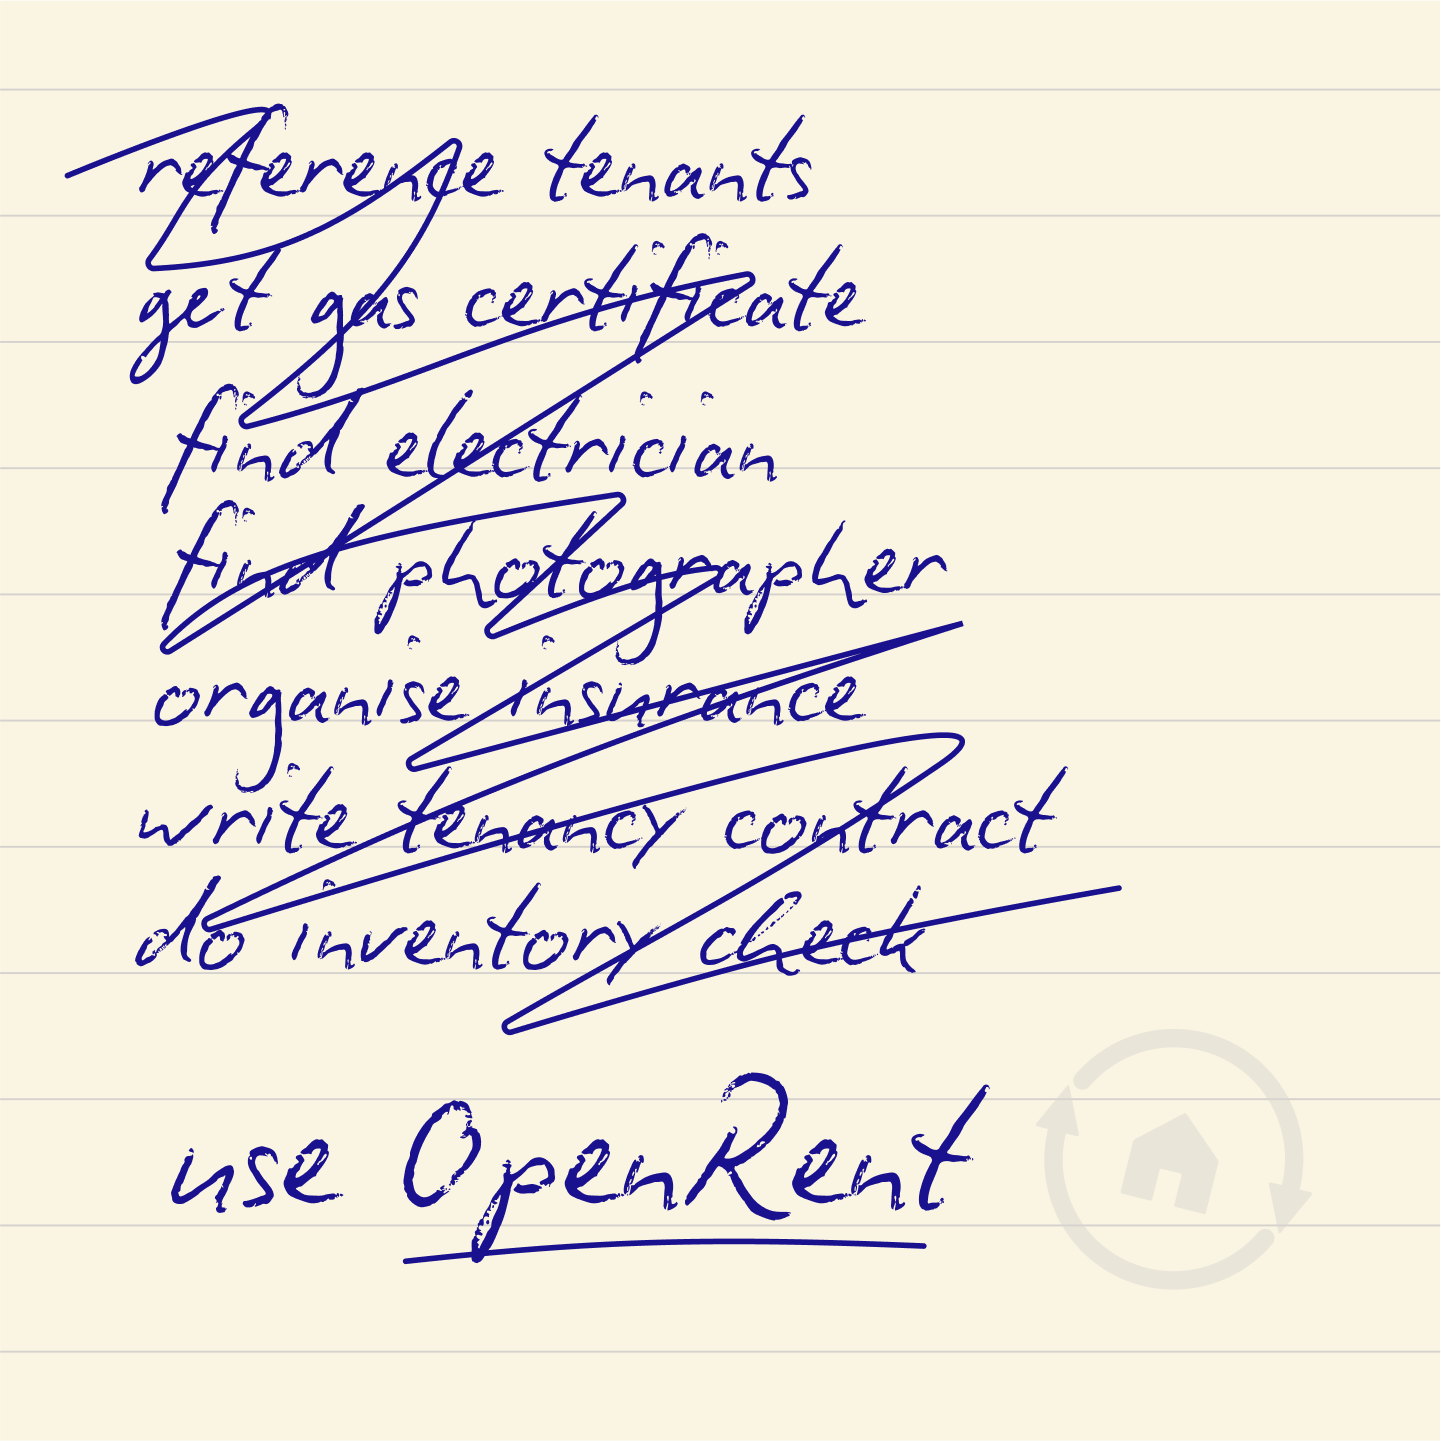 reference tenants
get gas certificate
find electrician
find photographer
organise insurance
write tenancy contract
do inventory check
use OpenRent